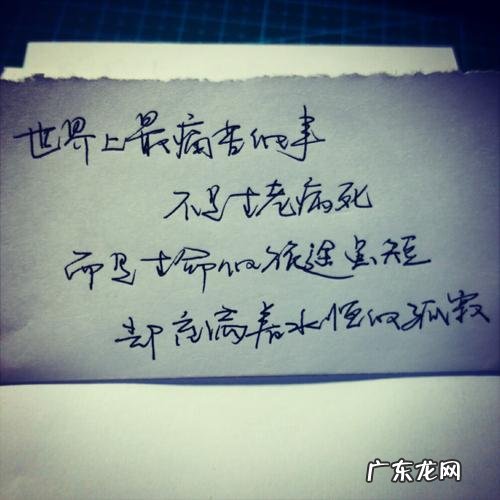 世界上最痛苦的事
不是生老病死
而是生命的旅途虽短
却充满着永恒的孤寂
广东龙网